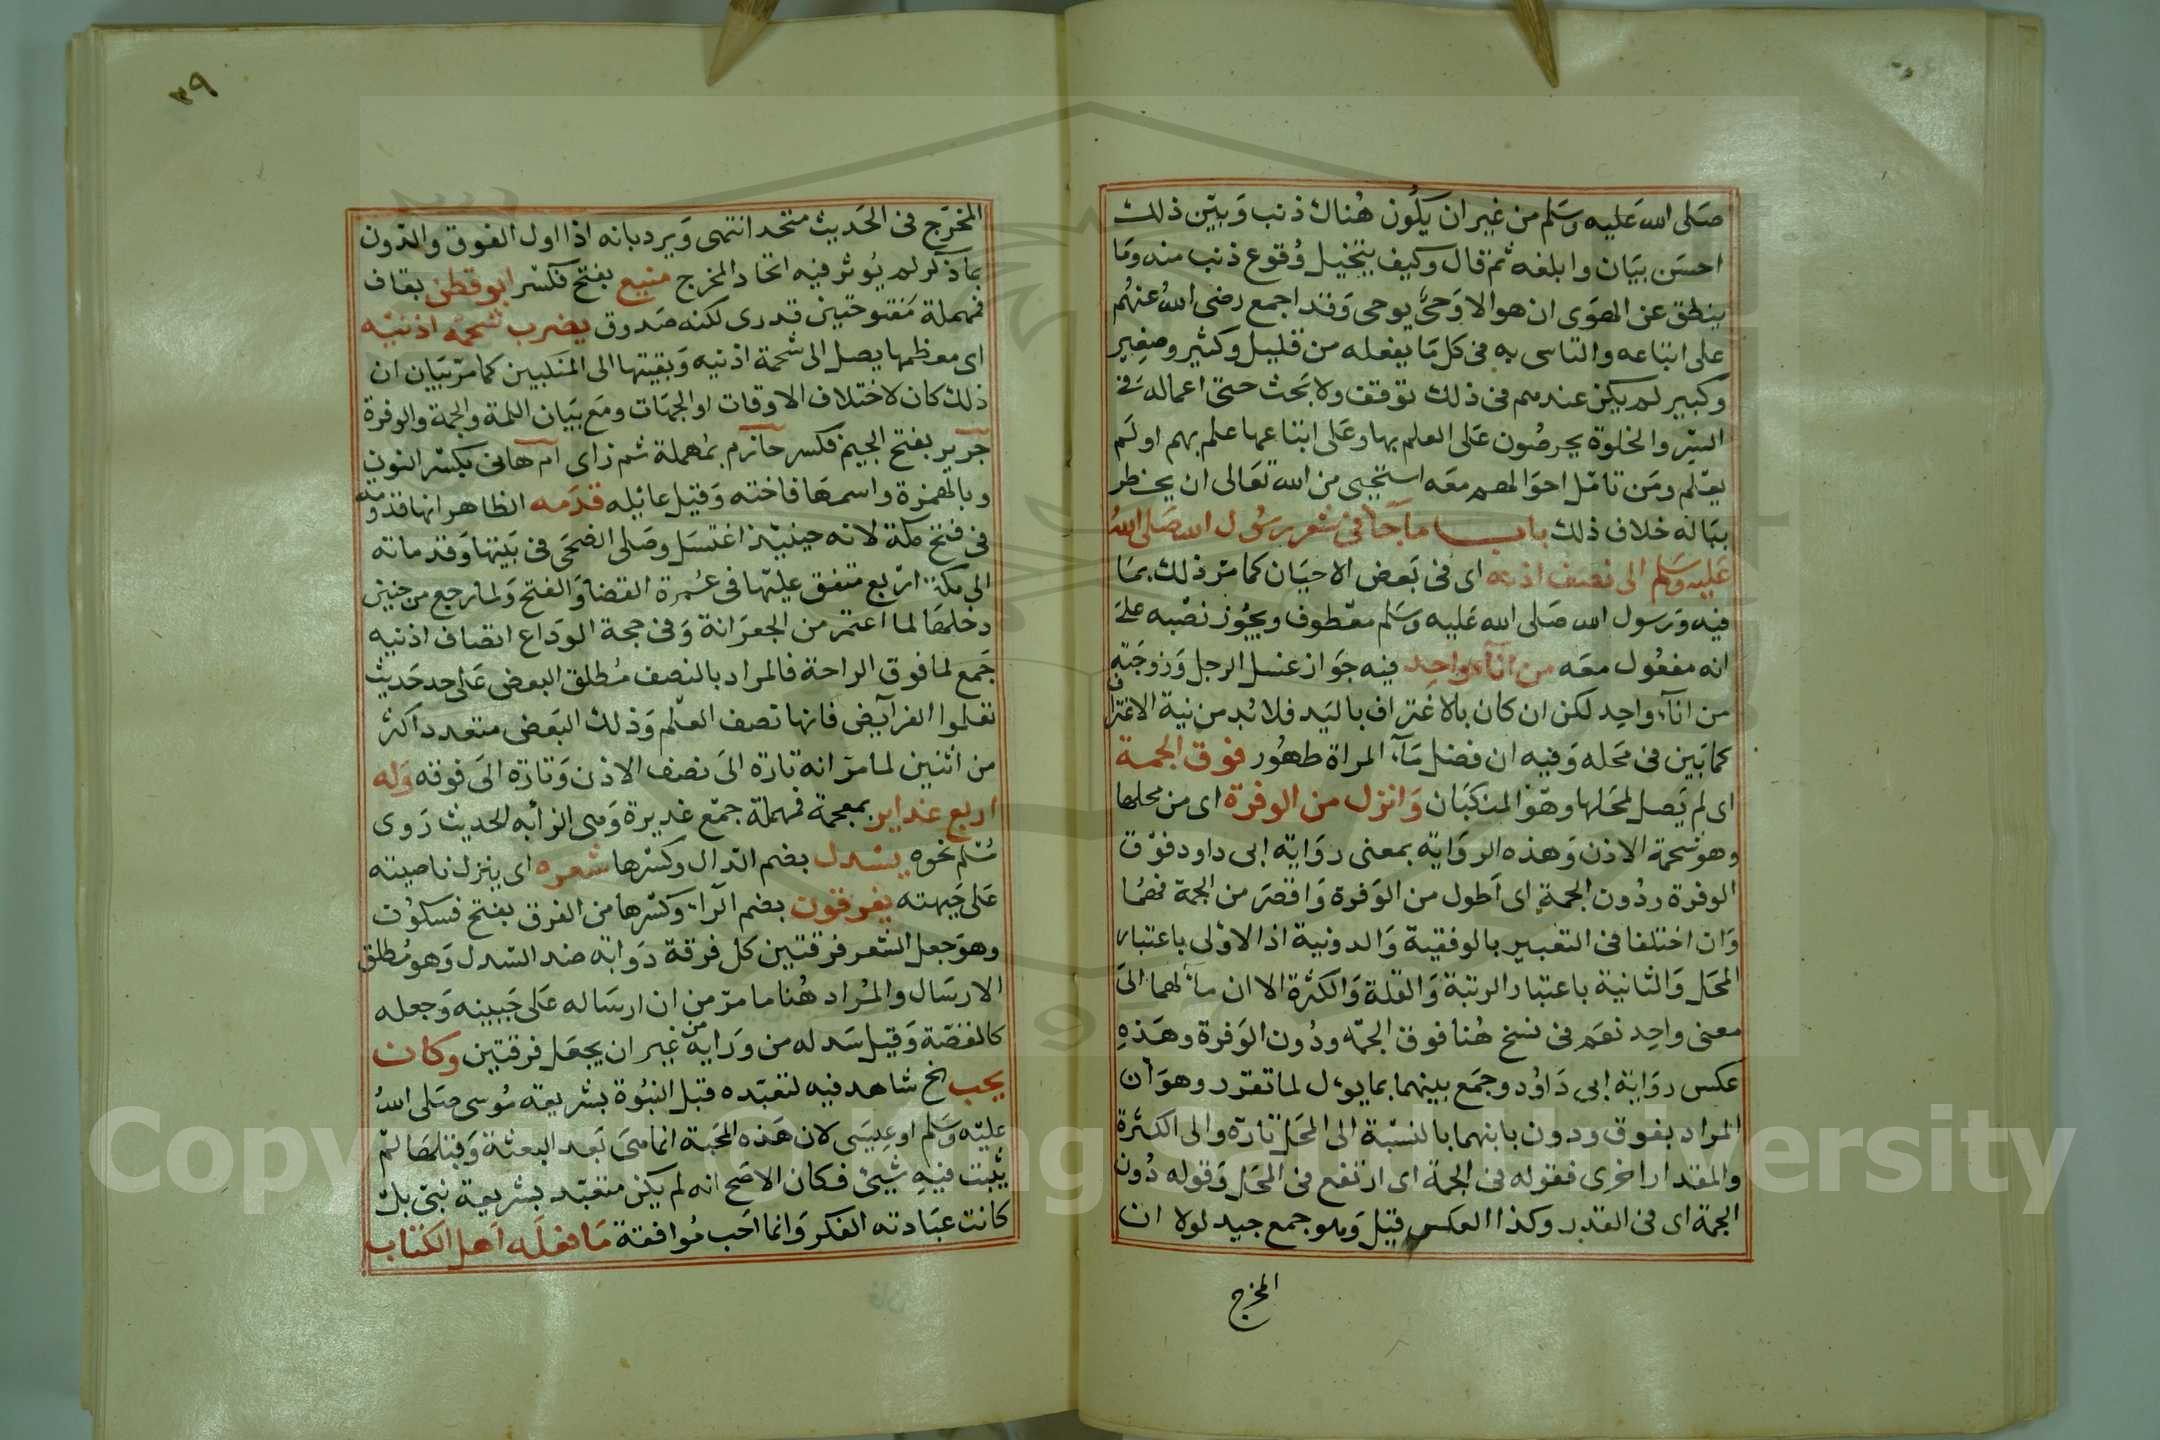 صلى الله عليه وسلم من غير ان يكون هناك ذنب وبين ذلك
احسن بيان وابلغه ثم قال وكيف يتخيل وقوع ذنب منه وما
ينطق عن الهوى ان هو الا وحي يوحى وقد اجمع رضى الله عنهم
على اتباعه والتاسى به فى كل ما يفعله من قليل وكثير وصغير
وكبير لم يكن عندهم فى ذلك توقف ولا بحث حتى اعماله فى
السر والخلوة يحرصون على العلم بها وعلى اتباعها علم بهم او لم
يعلم ومن تامل احوالهم معه استحيى من الله تعالى ان يخطر
بباله خلاف ذلك باب ما جا فى شعر رسول الله صلى الله
عليه وسلم الى نصف اذنه اى فى بعض الاحيان كما مر ذلك بما
فيه ورسول الله صلى الله عليه وسلم معطوف ويجوز نصبه على
انه مفعول معه من انآء واحد فيه جواز غسل الرجل وزوجته
من انآء واحد لكن ان كان بالاغتراف باليد فلا بد من نية الاغتراف
كما بين فى محله وفيه ان فضل مآء المراة طهور فوق الجمة
اى لم يصل لمحلها وهو المنكبان وانزل من الوفرة اى من محلها
وهو شحمة الاذن وهذه الرواية بمعنى رواية ابى داود فوق
الوفرة ودون الجمة اى اطول من الوفرة واقصر من الجمة فهما
وان اختلفا فى التعبير بالوفقية والدونية اذ الاولى باعتبار
المحل والثانية باعتبار الرتبة والقلة والكثرة الا ان مآلهما الى
معنى واحد نعم فى نسخ هنا فوق الجمه ودون الوفرة وهذه
عكس رواية ابى داود وجمع بينهما بما يول لما تقرر وهو ان
المراد بفوق ودون بابنهما بالنسبة الى المحل تارة والى الكثرة
والمقدار اخرى فقوله فى الجمة اى ارتفع فى المحل وقوله دون
الجمة اى فى القدر وكذا العكس قيل وهو جمع جيد لولا ان
المخرج
٣٩
المخرج فى الحديث متحد انتهى ويرد بانه اذا اول الفوق والدون
بما ذكر لم يوثر فيه اتحاد المخرج منيع بفتح فكسر ابو قطن بقاف
فمهملة مفتوحتين قدرى لكنه صدوق يضرب شحمة اذنيه
اى معظمها يصل الى شحمة اذنيه وبقيتها الى المنكبين كما مر بيان ان
ذلك كان لاختلاف الاوقات او الجهات ومع بيان اللمة والجمة والوفرة
جرير بفتح الجيم فكسر حازم بمهملة ثم زاى ام هانى بكسر النون
وبالهمزة واسمها فاخته وقيل عايله قدمه الظاهر انها قدومه
فى فتح مكة لانه حينيذ اغتسل وصلى الضحى فى بيتها وقدماته
الى مكة اربع متفق عليها فى عمرة القضا والفتح ولما رجع من حنين
دخلها لما اعتمر من الجعرانة وفى حجة الوداع انصاف اذنيه
جمع لما فوق الراحة فالمراد بالنصف مطلق البعض على حد حديث
تعلموا الفرآيض فانها نصف العلم وذلك البعض متعدد اكثر
من اثنين لما مر انه تارة الى نصف الاذن وتارة الى فوقه وله
اربع غداير بمعجمة فمهملة جمع غديرة وهى الزآبه الحديث روى
مسلم نحوه يسدل بضم الدال وكسرها شعره اى ينزل ناصيته
على جبهته يفرقون بضم الرآء وكسرها من الفرق بفتح فسكون
وهو جعل الشعر فرقتين كل فرقة دوابه ضد السدل وهو مطلق
الارسال والمراد هنا ما مر من ان ارساله على جبينه وجعله
كالقصة وقيل سدله من ورايه من غير ان يجعل فرقتين وكان
يحب الخ شاهد فيه لتعبده قبل النبوة بشريعة موسى صلى الله
عليه وسلم او عيسى لان هذه المحبة انما هى بعد البعثة وقبلها لم
يثبت فيه شيئ فكان الاصح انه لم يكن متعبد بشريعة نبى بل
كانت عبادته الفكر وانما احب موافقة ما فعله اهل الكتاب
Copyright © King Saud University